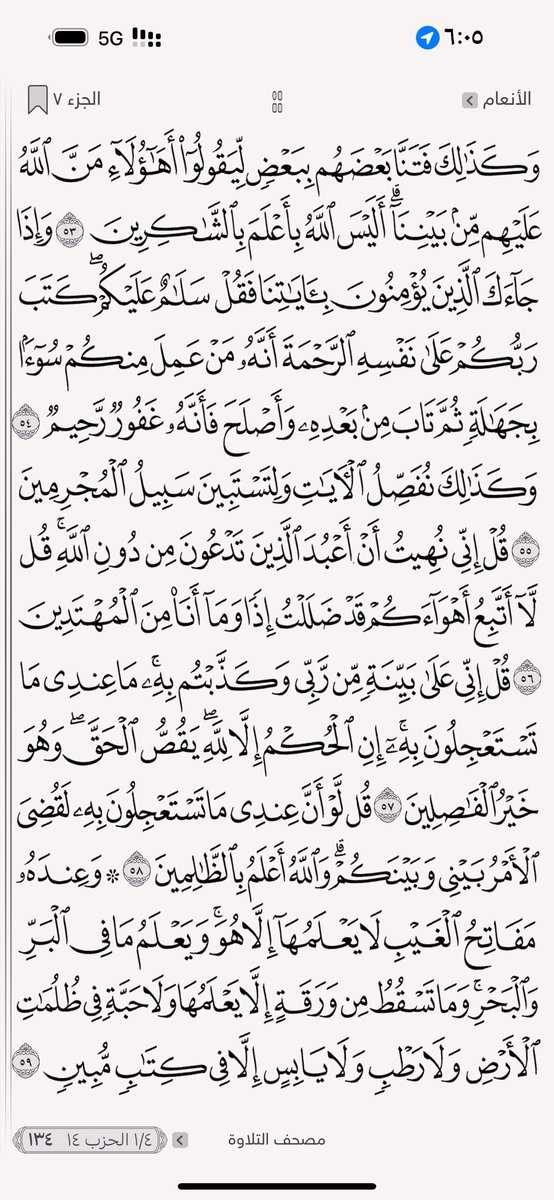 ٦:٠٥ 5G
الأنعام الجزء ٧
وَكَذَٰلِكَ فَتَنَّا بَعْضَهُم بِبَعْضٍ لِّيَقُولُوٓا۟ أَهَٰٓؤُلَآءِ مَنَّ ٱللَّهُ
عَلَيْهِم مِّنۢ بَيْنِنَآ ۗ أَلَيْسَ ٱللَّهُ بِأَعْلَمَ بِٱلشَّٰكِرِينَ ٥٣ وَإِذَا
جَآءَكَ ٱلَّذِينَ يُؤْمِنُونَ بِـَٔايَٰتِنَا فَقُلْ سَلَٰمٌ عَلَيْكُمْ ۖ كَتَبَ
رَبُّكُمْ عَلَىٰ نَفْسِهِ ٱلرَّحْمَةَ أَنَّهُۥ مَنْ عَمِلَ مِنكُمْ سُوٓءًۢا
بِجَهَٰلَةٍ ثُمَّ تَابَ مِنۢ بَعْدِهِۦ وَأَصْلَحَ فَأَنَّهُۥ غَفُورٌ رَّحِيمٌ ٥٤
وَكَذَٰلِكَ نُفَصِّلُ ٱلْـَٔايَٰتِ وَلِتَسْتَبِينَ سَبِيلُ ٱلْمُجْرِمِينَ
٥٥ قُلْ إِنِّى نُهِيتُ أَنْ أَعْبُدَ ٱلَّذِينَ تَدْعُونَ مِن دُونِ ٱللَّهِ ۚ قُل
لَّآ أَتَّبِعُ أَهْوَآءَكُمْ ۙ قَدْ ضَلَلْتُ إِذًا وَمَآ أَنَا۠ مِنَ ٱلْمُهْتَدِينَ
٥٦ قُلْ إِنِّى عَلَىٰ بَيِّنَةٍ مِّن رَّبِّى وَكَذَّبْتُم بِهِۦ ۚ مَا عِندِى مَا
تَسْتَعْجِلُونَ بِهِۦٓ ۚ إِنِ ٱلْحُكْمُ إِلَّا لِلَّهِ ۖ يَقُصُّ ٱلْحَقَّ ۖ وَهُوَ
خَيْرُ ٱلْفَٰصِلِينَ ٥٧ قُل لَّوْ أَنَّ عِندِى مَا تَسْتَعْجِلُونَ بِهِۦ لَقُضِىَ
ٱلْأَمْرُ بَيْنِى وَبَيْنَكُمْ ۗ وَٱللَّهُ أَعْلَمُ بِٱلظَّٰلِمِينَ ٥٨ ۞ وَعِندَهُۥ
مَفَاتِحُ ٱلْغَيْبِ لَا يَعْلَمُهَآ إِلَّا هُوَ ۚ وَيَعْلَمُ مَا فِى ٱلْبَرِّ
وَٱلْبَحْرِ ۚ وَمَا تَسْقُطُ مِن وَرَقَةٍ إِلَّا يَعْلَمُهَا وَلَا حَبَّةٍ فِى ظُلُمَٰتِ
ٱلْأَرْضِ وَلَا رَطْبٍ وَلَا يَابِسٍ إِلَّا فِى كِتَٰبٍ مُّبِينٍ ٥٩
مصحف التلاوة ١/٤ الحزب ١٤ ١٣٤